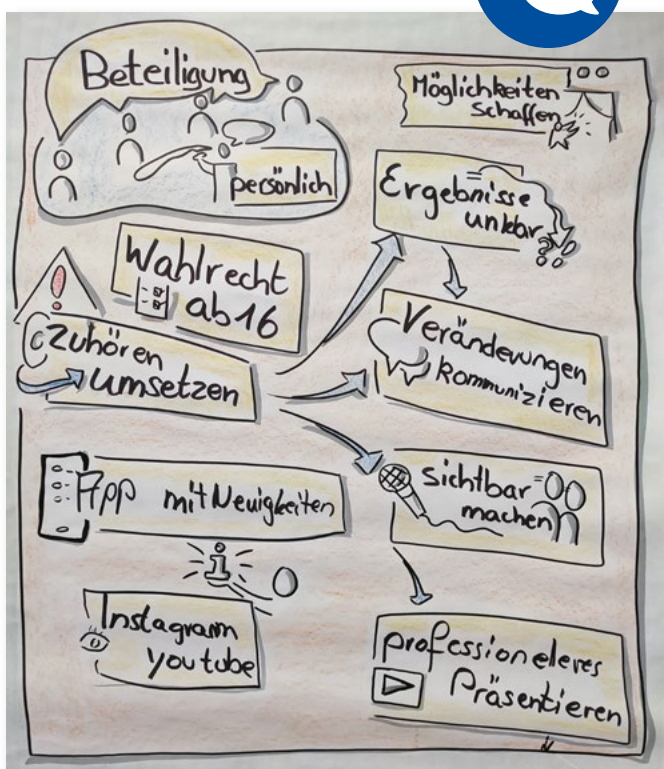 Beteiligung
persönlich
Möglichkeiten
schaffen
Wahlrecht
ab 16
Zuhören
umsetzen
Ergebnisse
unklar
Veränderungen
kommunizieren
App mit Neuigkeiten
sichtbar
machen
i
Instagram
youtube
professioneleres
Präsentieren